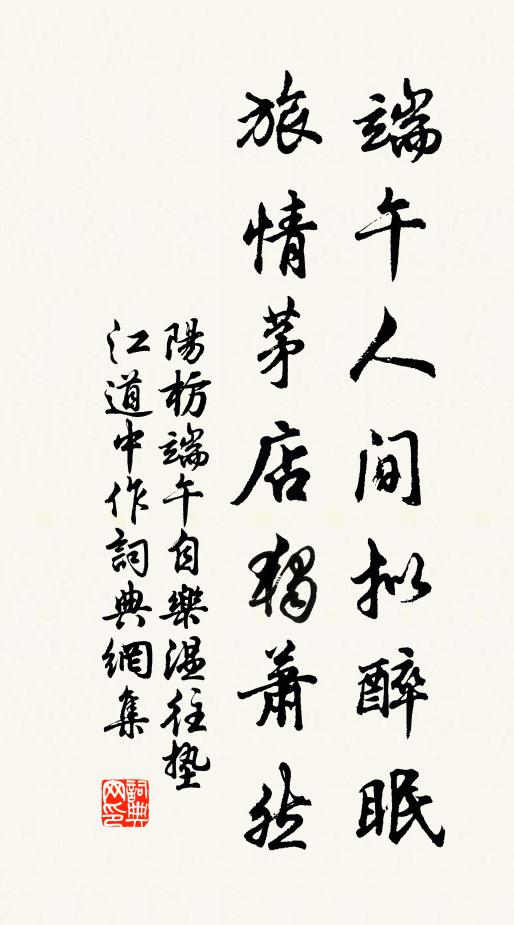 端午人间拟醉眠
旅情茅店独萧然
陽枋端午自樂温往墊
江道中作詞典網集
詞典
网印